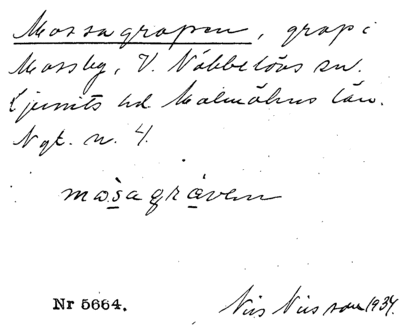 Mossagrapen, grop i
Mossby, V. Nöbbelövs sn.
Ljunits hd Malmöhus län.
Ngt. n. 4.
mo̱sagra̱ven
Nr 5664. Nils Nilsson 1934.